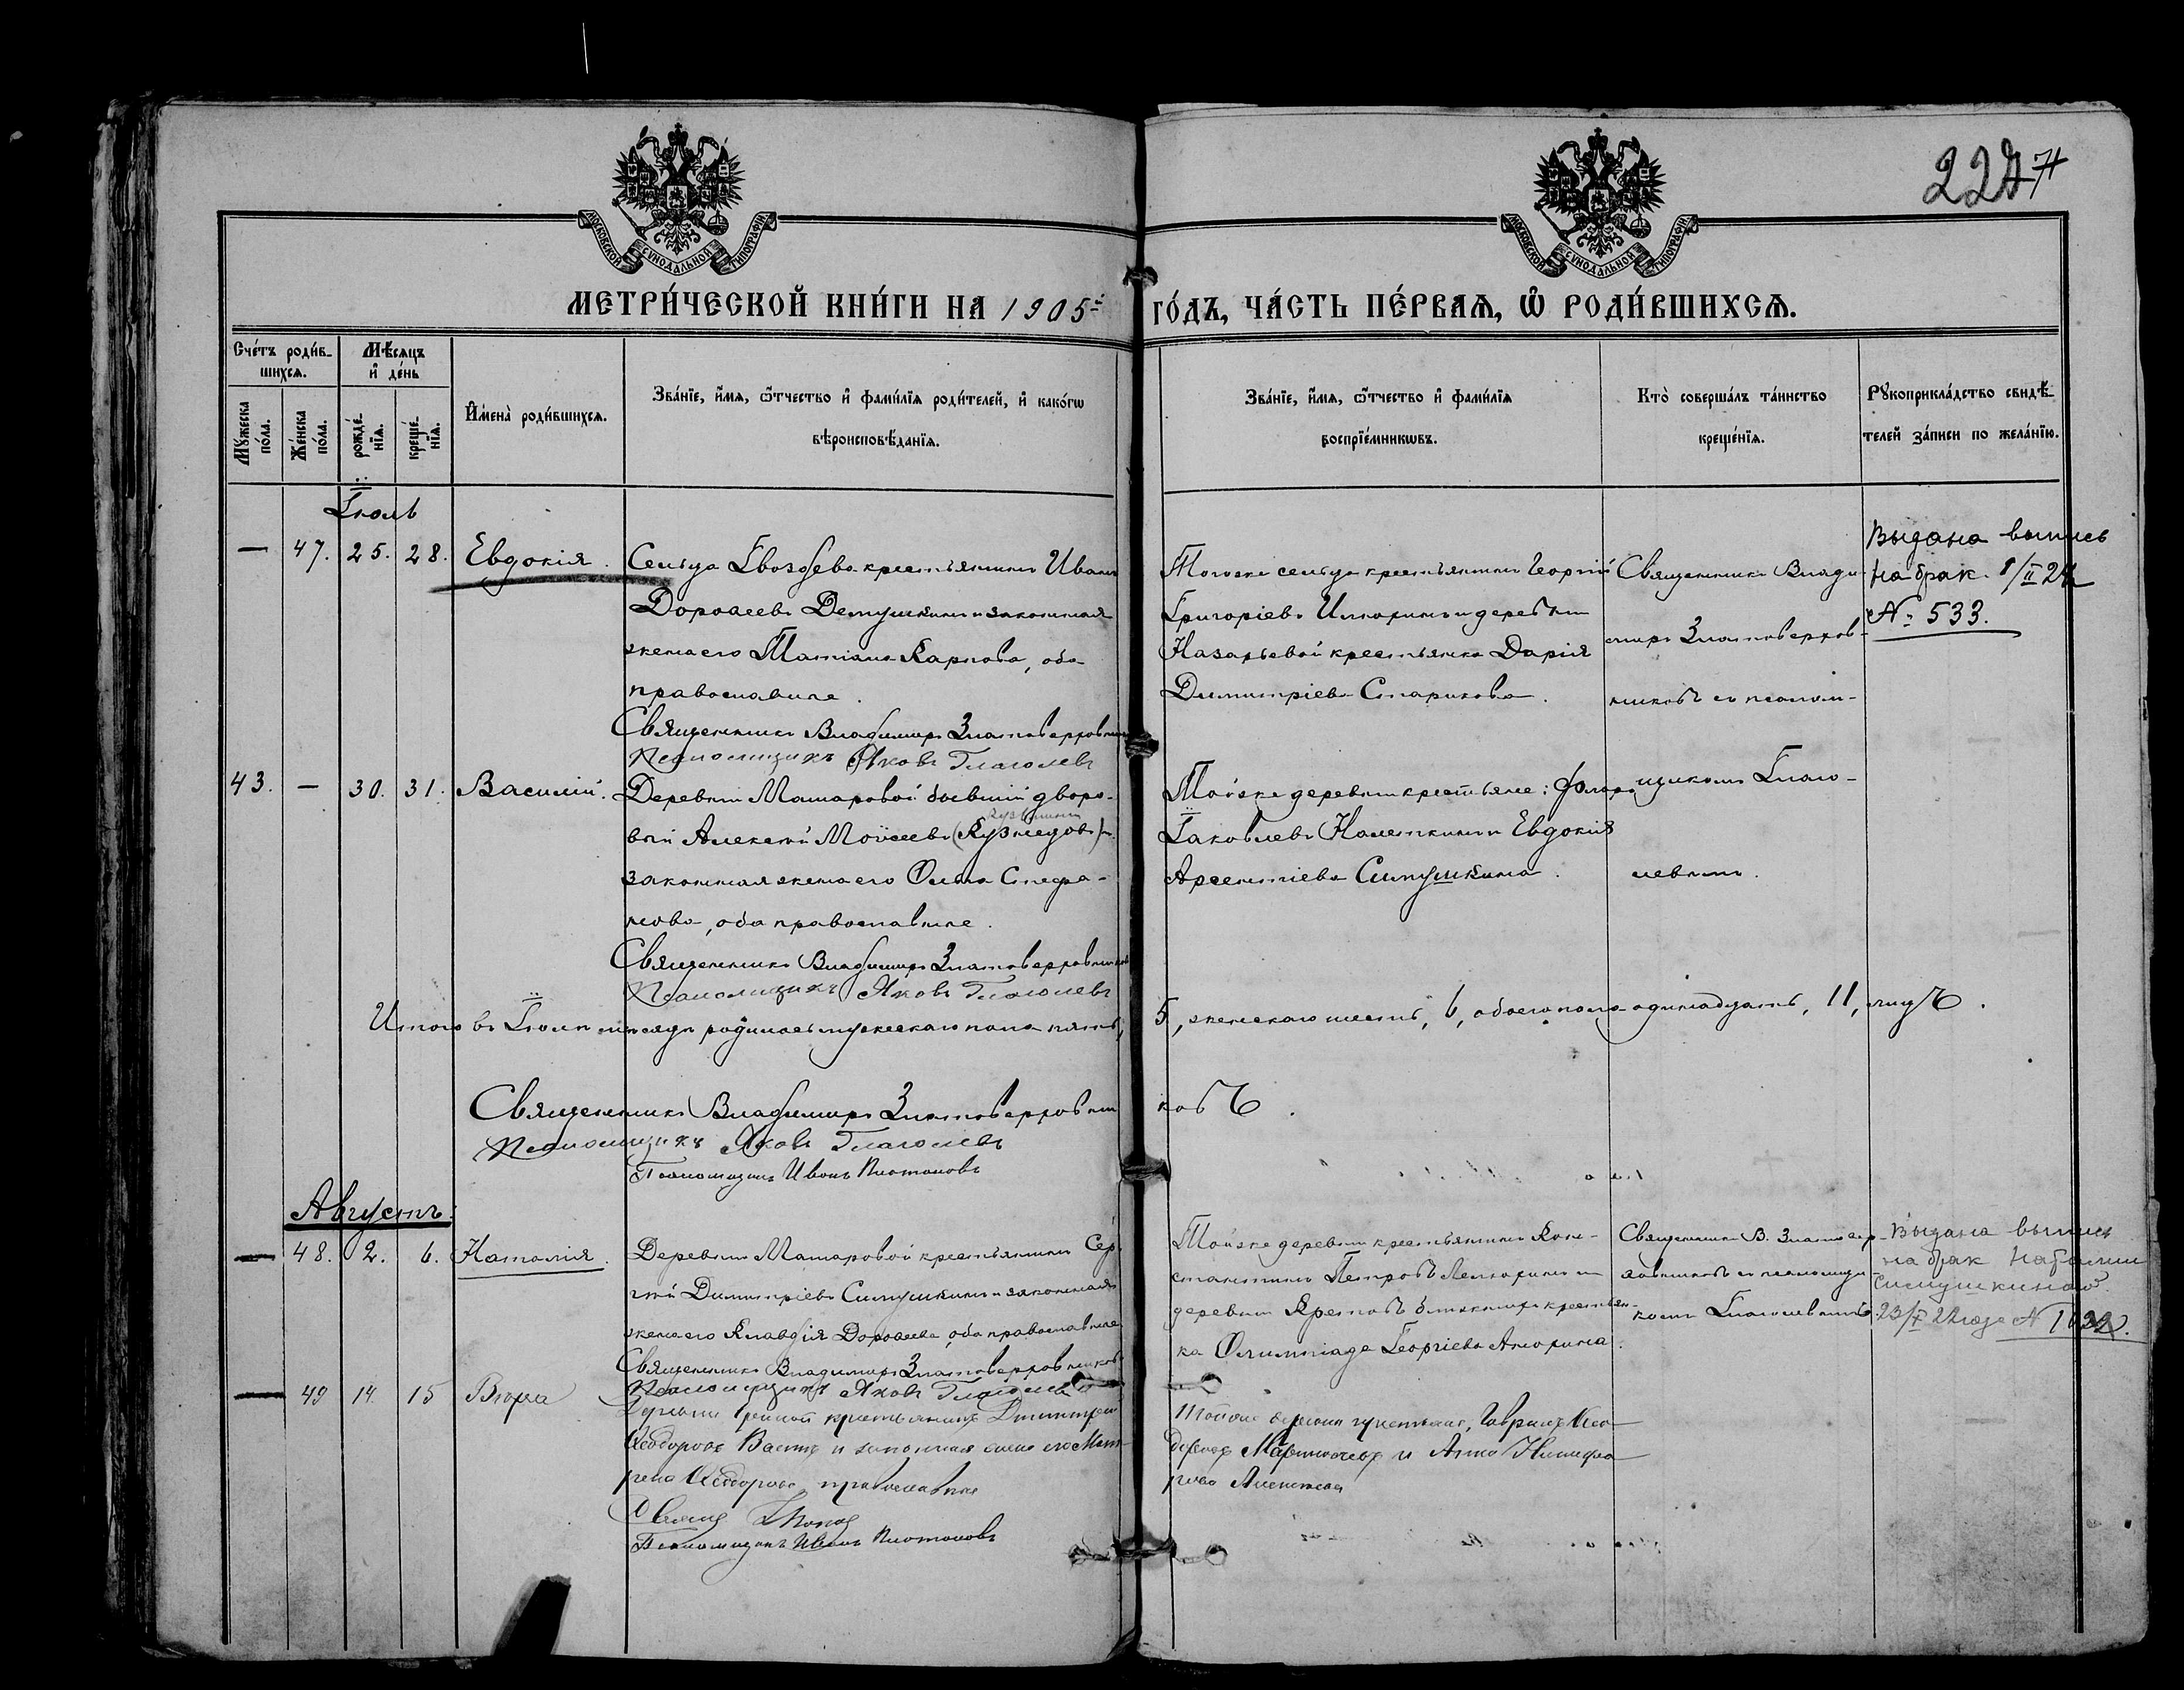 227
МОСКОВСКОЙ СѴНОДАЛЬНОЙ ТИПОГРАФІИ
МОСКОВСКОЙ СѴНОДАЛЬНОЙ ТИПОГРАФІИ
МЕТРИ́ЧЕСКОЙ КНИ́ГИ НА 1905й ГО́ДЪ, ЧА́СТЬ ПЕ́РВАѦ, Ѡ҆ РОДИ́ВШИХСѦ.
Сче́тъ роди́в-
шихсѧ.
Мѣ́сѧцъ
и҆ де́нь
Мꙋ́жеска
по́ла.
Же́нска
по́ла.
рожде́-
нїѧ.
креще́-
нїѧ.
И҆мена̀ роди́вшихсѧ.
Зва́нїе, и҆́мѧ, ѻ҆́тчество и҆ фами́лїѧ роди́телей, и҆ како́гѡ
вѣроисповѣ́данїѧ.
Зва́нїе, и҆́мѧ, ѻ҆́тчество и҆ фами́лїѧ
воспрїе́мникѡвъ.
Кто̀ соверша́лъ та́инство
креще́нїѧ.
Рꙋкоприкла́дство свидѣ́-
телей за́писи по жела́нїю.
Іюль
— 47. 25. 28. Евдокія.
Сельца Гвоздева крестьянинъ Иванъ
Дороѳеевъ Демушкинъ и законная
жена его Татіана Карпова, оба
православные.
Священникъ Владимиръ Златоверховни
Псаломщикъ Яковъ Глаголевъ
Тогоже сельца крестьянинъ Георгій
Григоріевъ Илюхинъ и деревни
Назарьевой крестьянка Дарія
Димитріева Старикова.
Священникъ Влади-
миръ Златоверхов-
никовъ съ псалом-
щикомъ Глаго-
левымъ.
Выдана выпись
на брак 1/II 24
№ 533.
43. — 30. 31. Василій.
Деревни Машаровой бывшій дворо-
вый Алексѣй Моѵсеевъ (Кузнецовъ) и
законная жена его Ольга Стефа-
нова, оба православные.
Священникъ Владимиръ Златоверховников
Псаломщикъ Яковъ Глаголевъ
Тойже деревни крестьяне: Флоръ
Іаковлевъ Калёткинъ и Евдокія
Арсентіева Синушкина.
Итого въ Іюлѣ мѣсяцѣ родилось мужескаго пола пять, 5, женскаго шесть, 6, обоего пола одинадцать, 11, лицъ.
Священникъ Владимиръ Златоверховни ковъ.
Псаломщикъ Яковъ Глаголевъ
Псаломщикъ Иванъ Платоновъ
Августъ.
— 48. 2. 6. Наталія.
Деревни Машаровой крестьянинъ Сер-
гѣй Димитріевъ Синушкинъ и законная
жена его Клавдія Дороѳеева, оба православные
Священникъ Владимиръ Златоверховниковъ
Псаломщикъ Яковъ Глаголевъ
Тойже деревни крестьянинъ Кон-
стантинъ Петровъ и
деревни крестьян-
ка Олимпіада Георгіева Анохина.
Священникъ В. Златовер-
ховниковъ съ псаломщи-
комъ Глаголевымъ.
Выдана выпись
на брак Наталии
Синушкиной
— 49 14 15 Вѣра
Деревни крестьянинъ Димитрій
Ѳеодоровъ и законная жена его Мат-
рена Ѳеодорова, православные
Псаломщикъ Иванъ Платоновъ
Тойже деревни крестьяне, Гавріилъ Ѳео-
доровъ и Анна Никифо-
рова